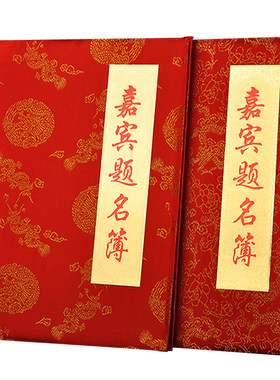 嘉宾题名簿
嘉宾题名簿